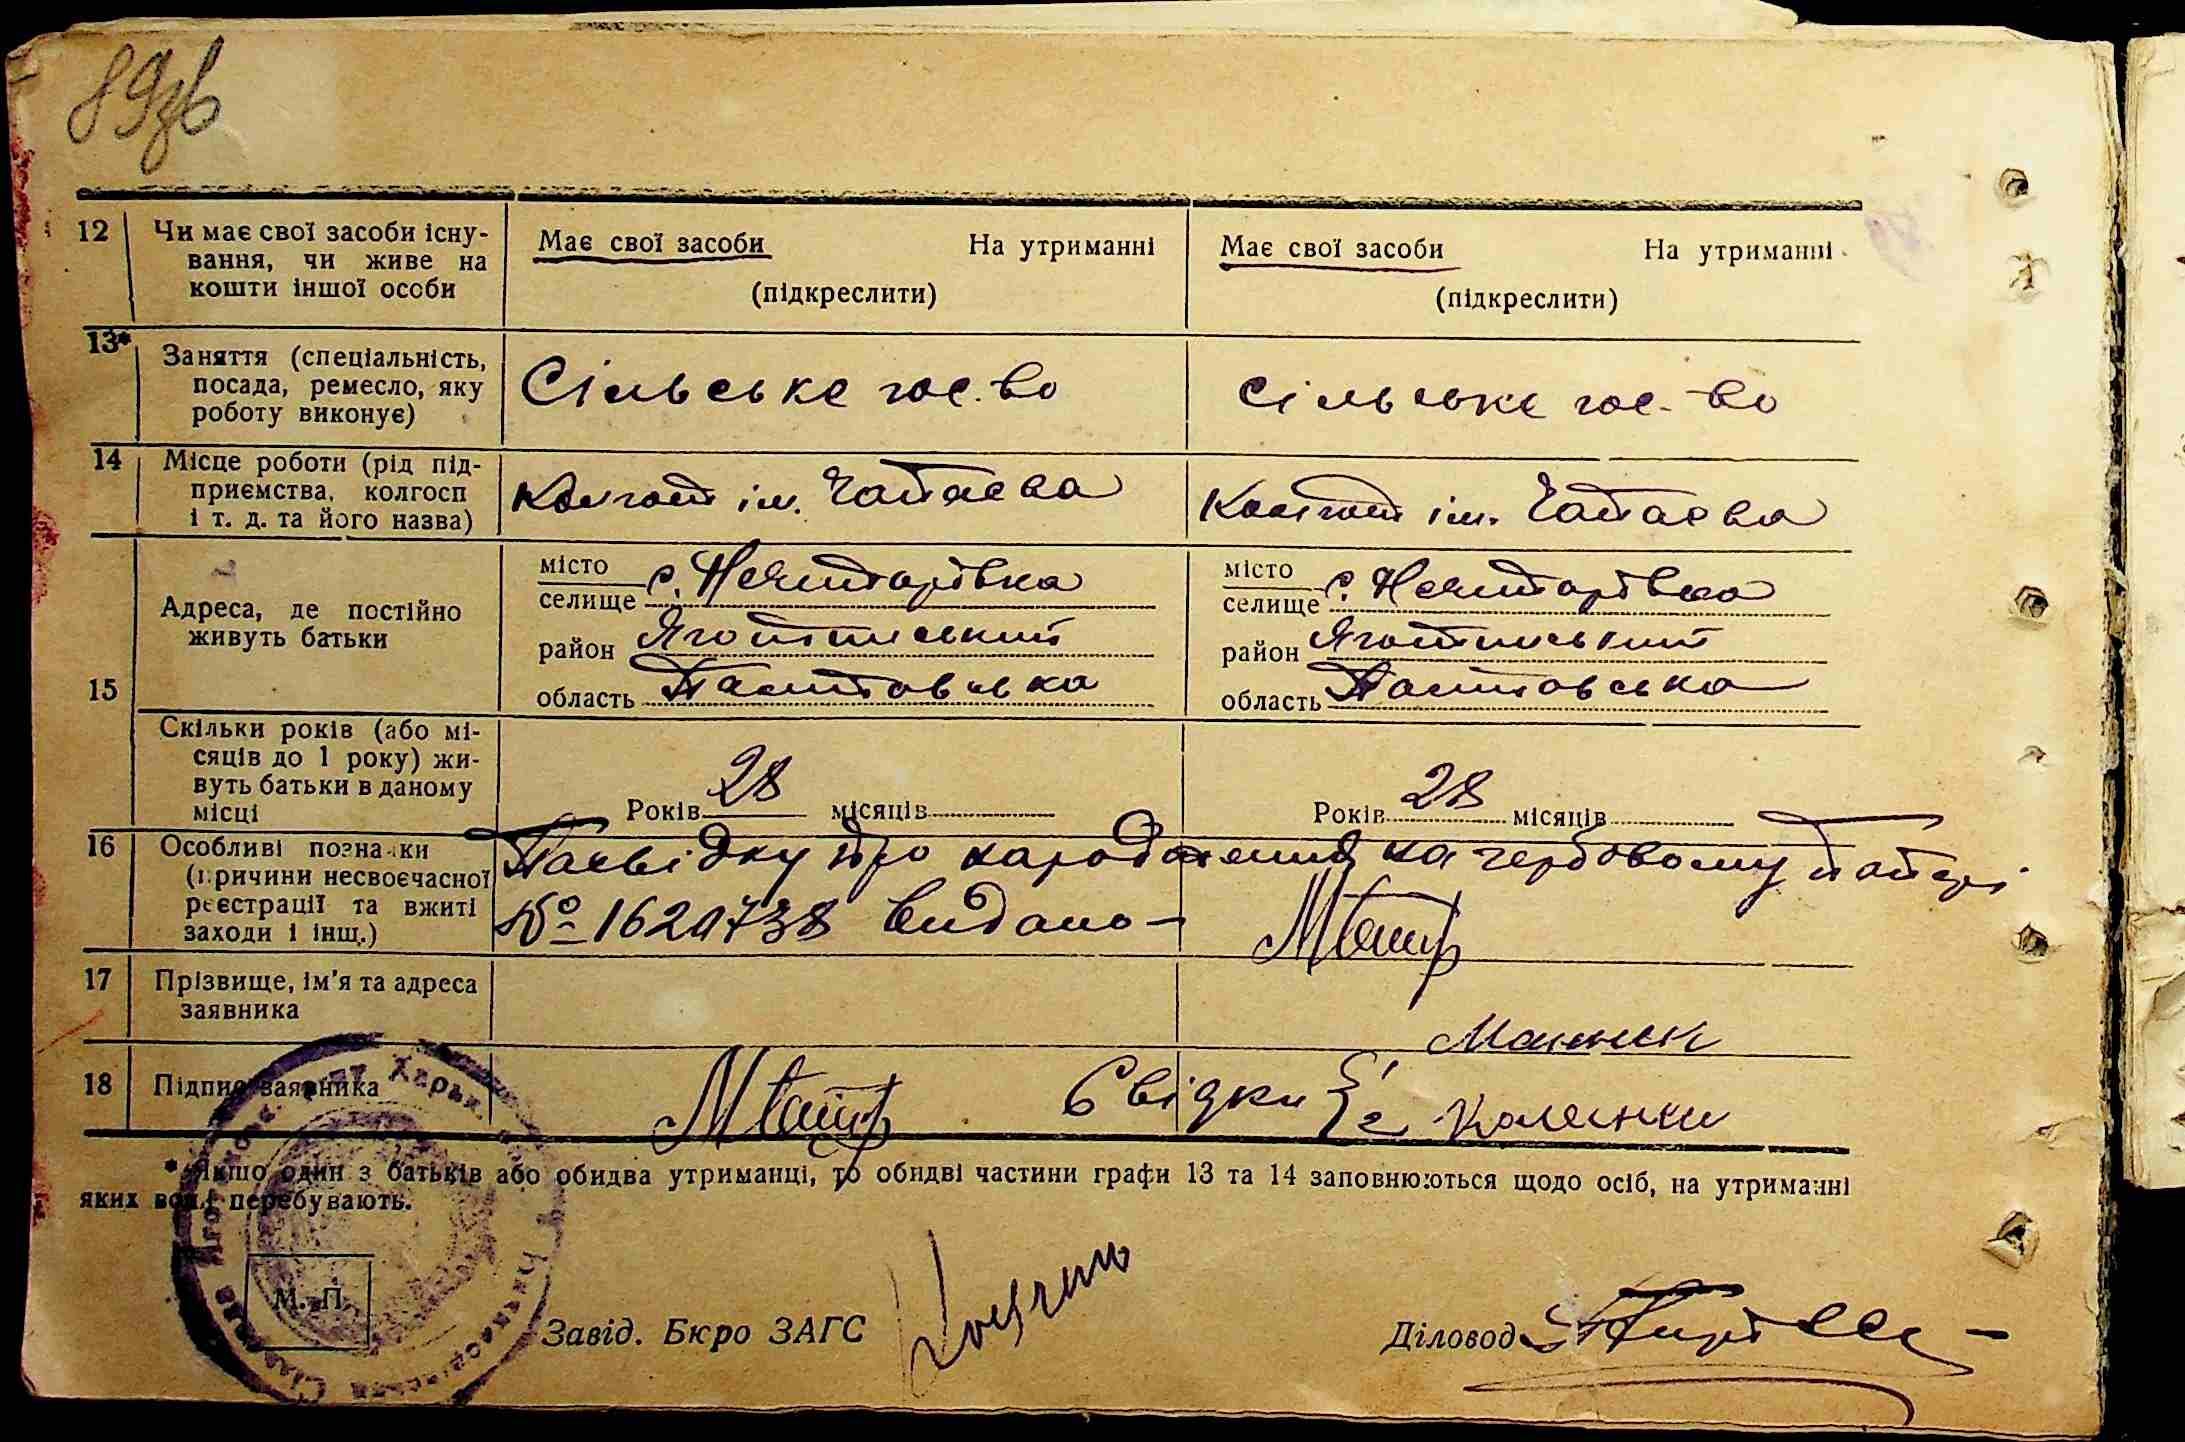 89зв
12 Чи має свої засоби існу-
вання, чи живе на
кошти іншої особи
Має свої засоби На утриманні
(підкреслити)
Має свої засоби На утриманні
(підкреслити)
13* Заняття (спеціальність,
посада, ремесло, яку
роботу виконує)
Сільське гос-во
Сільське гос-во
14 Місце роботи (рід під-
приємства, колгосп
і т. д. та його назва)
Колгосп ім. Чапаєва
Колгосп ім. Чапаєва
15 Адреса, де постійно
живуть батьки
місто
селище с. Нечипорівка
район Яготинський
область Полтавська
місто
селище с. Нечипорівка
район Яготинський
область Полтавська
Скільки років (або мі-
сяців до 1 року) жи-
вуть батьки в даному
місці
Років 28 місяців
Років 28 місяців
16 Особливі познаки
(причини несвоєчасної
реєстрації та вжиті
заходи і інщ.)
Посвідку про народження на гербовому папері
№ 1620738 видано
17 Прізвище, ім'я та адреса
заявника
18 Підпис заявника
Свідки 1
2
* Якшо один з батьків або обидва утриманці, то обидві частини графи 13 та 14 заповнюються щодо осіб, на утриманні
яких вони перебувають.
М. П.
Завід. Бюро ЗАГС
Діловод